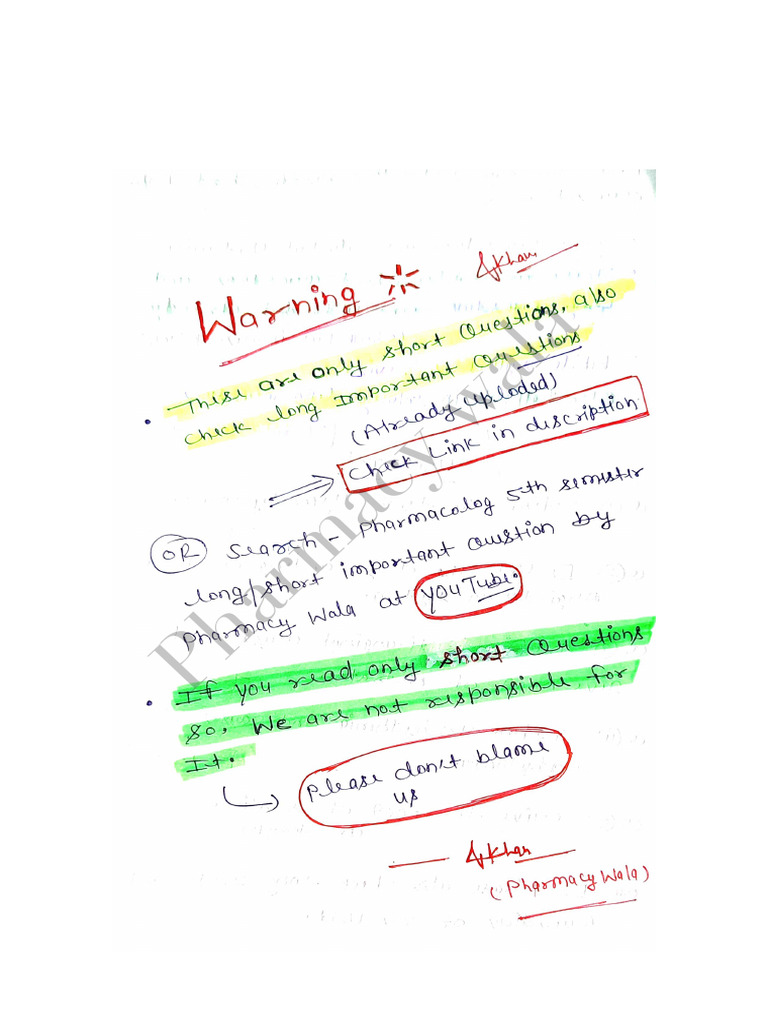 Warning
AKhan
• These are only short Questions, also
check long Important Questions
(Already uploded)
⟹ Check Link in discription
OR Search - Pharmacolog 5th semister
long/short important Question by
Pharmacy Wala at YOUTube.
Pharmacy wala
• If you read only short Questions
so, We are not responsible for
It.
Please don't blame
us
AKhan
(Pharmacy Wala)